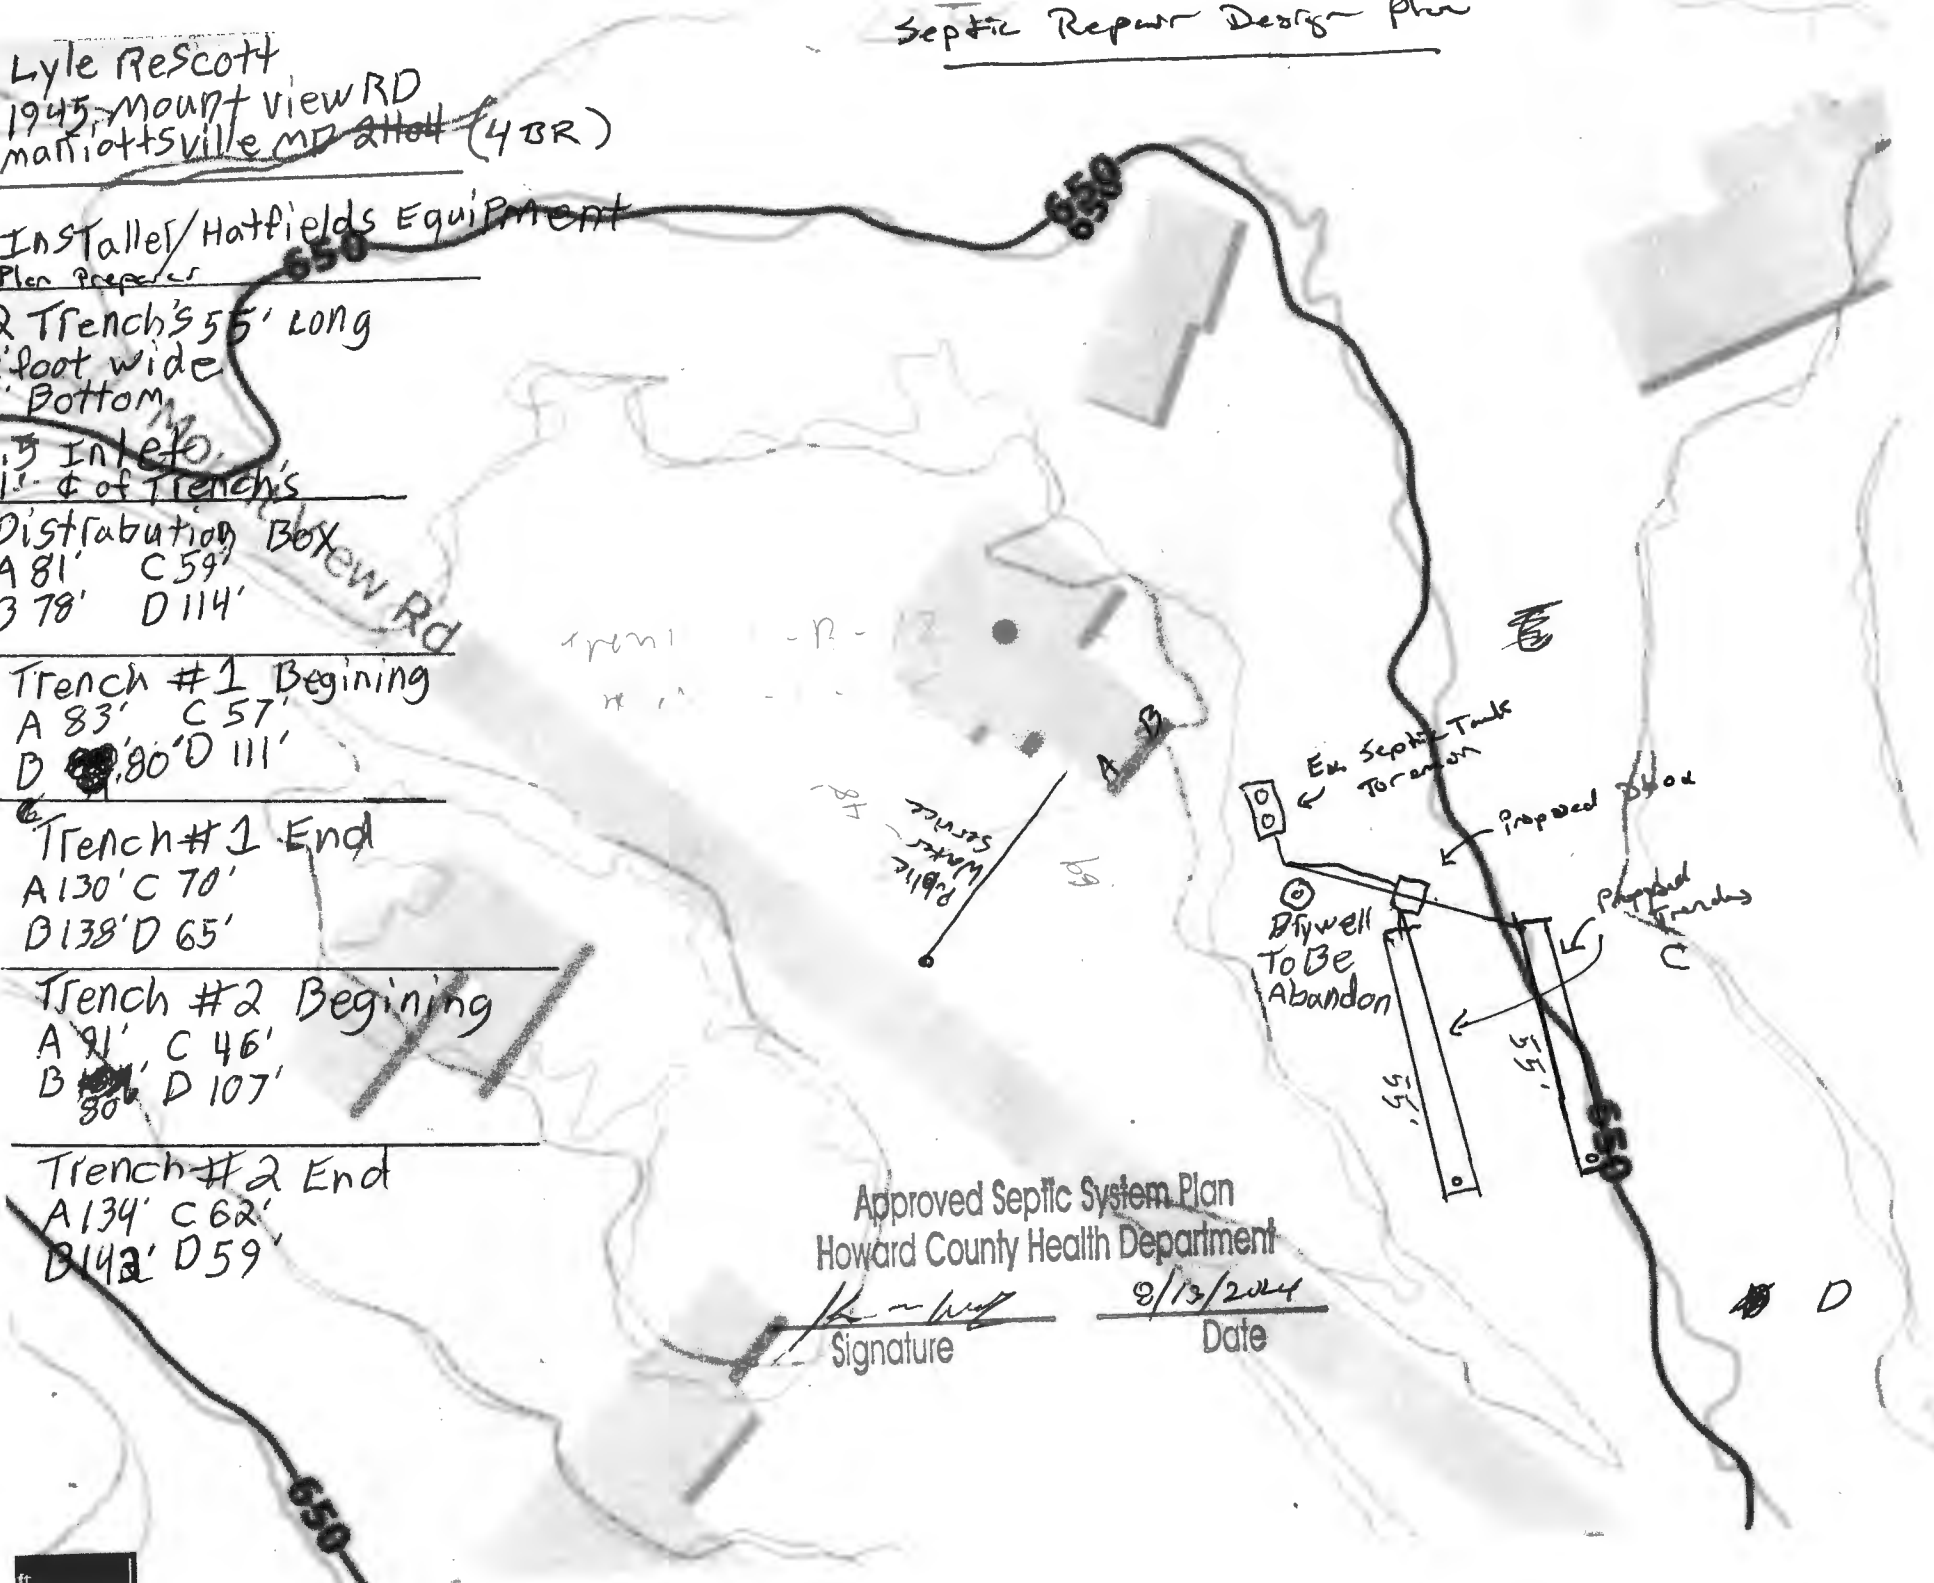 Septic Repair Design Plan
Lyle Rescott
1945 Mount View RD
Marriottsville MD 21104 (4 BR)
Installer/Hatfields Equipment
Plan Preparer
2 Trench's 55' Long
foot wide
' Bottom
.5 Inlet
¢ of Trench's
Distrabution Box
A 81' C 59'
B 78' D 114'
Trench #1 Begining
A 83' C 57'
B 80' D 111'
Trench #1 End
A 130' C 70'
B 138' D 65'
Trench #2 Begining
A 91' C 46'
B 80' D 107'
Trench #2 End
A 134' C 62'
B 142' D 59'
650
650
650
650
650
650
Mo
view Rd
A
B
Public
Water
Service
Ex. Septic Tank
To remain
Proposed Dbox
Proposed
Trenches
Drywell
To Be
Abandon
55'
55'
C
D
Approved Septic System Plan
Howard County Health Department
8/13/2024
Signature
Date
ft